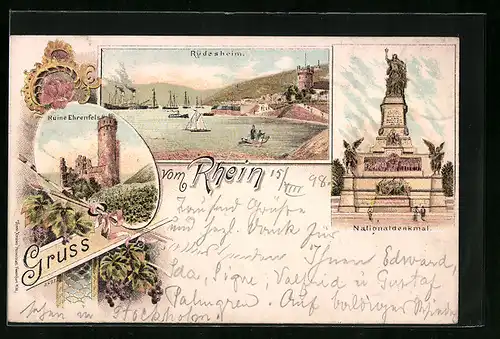 Rüdesheim.
Ruine Ehrenfels.
Nationaldenkmal.
Gruss
vom Rhein 15/VIII 98.
Tausend Grüsse
und herzl. Dank für
Alles senden Ihnen Edward,
Ida, Signe, Valfrid u Gustaf
Palmgren. Auf baldiges Wieder
sehen in Stockholm.